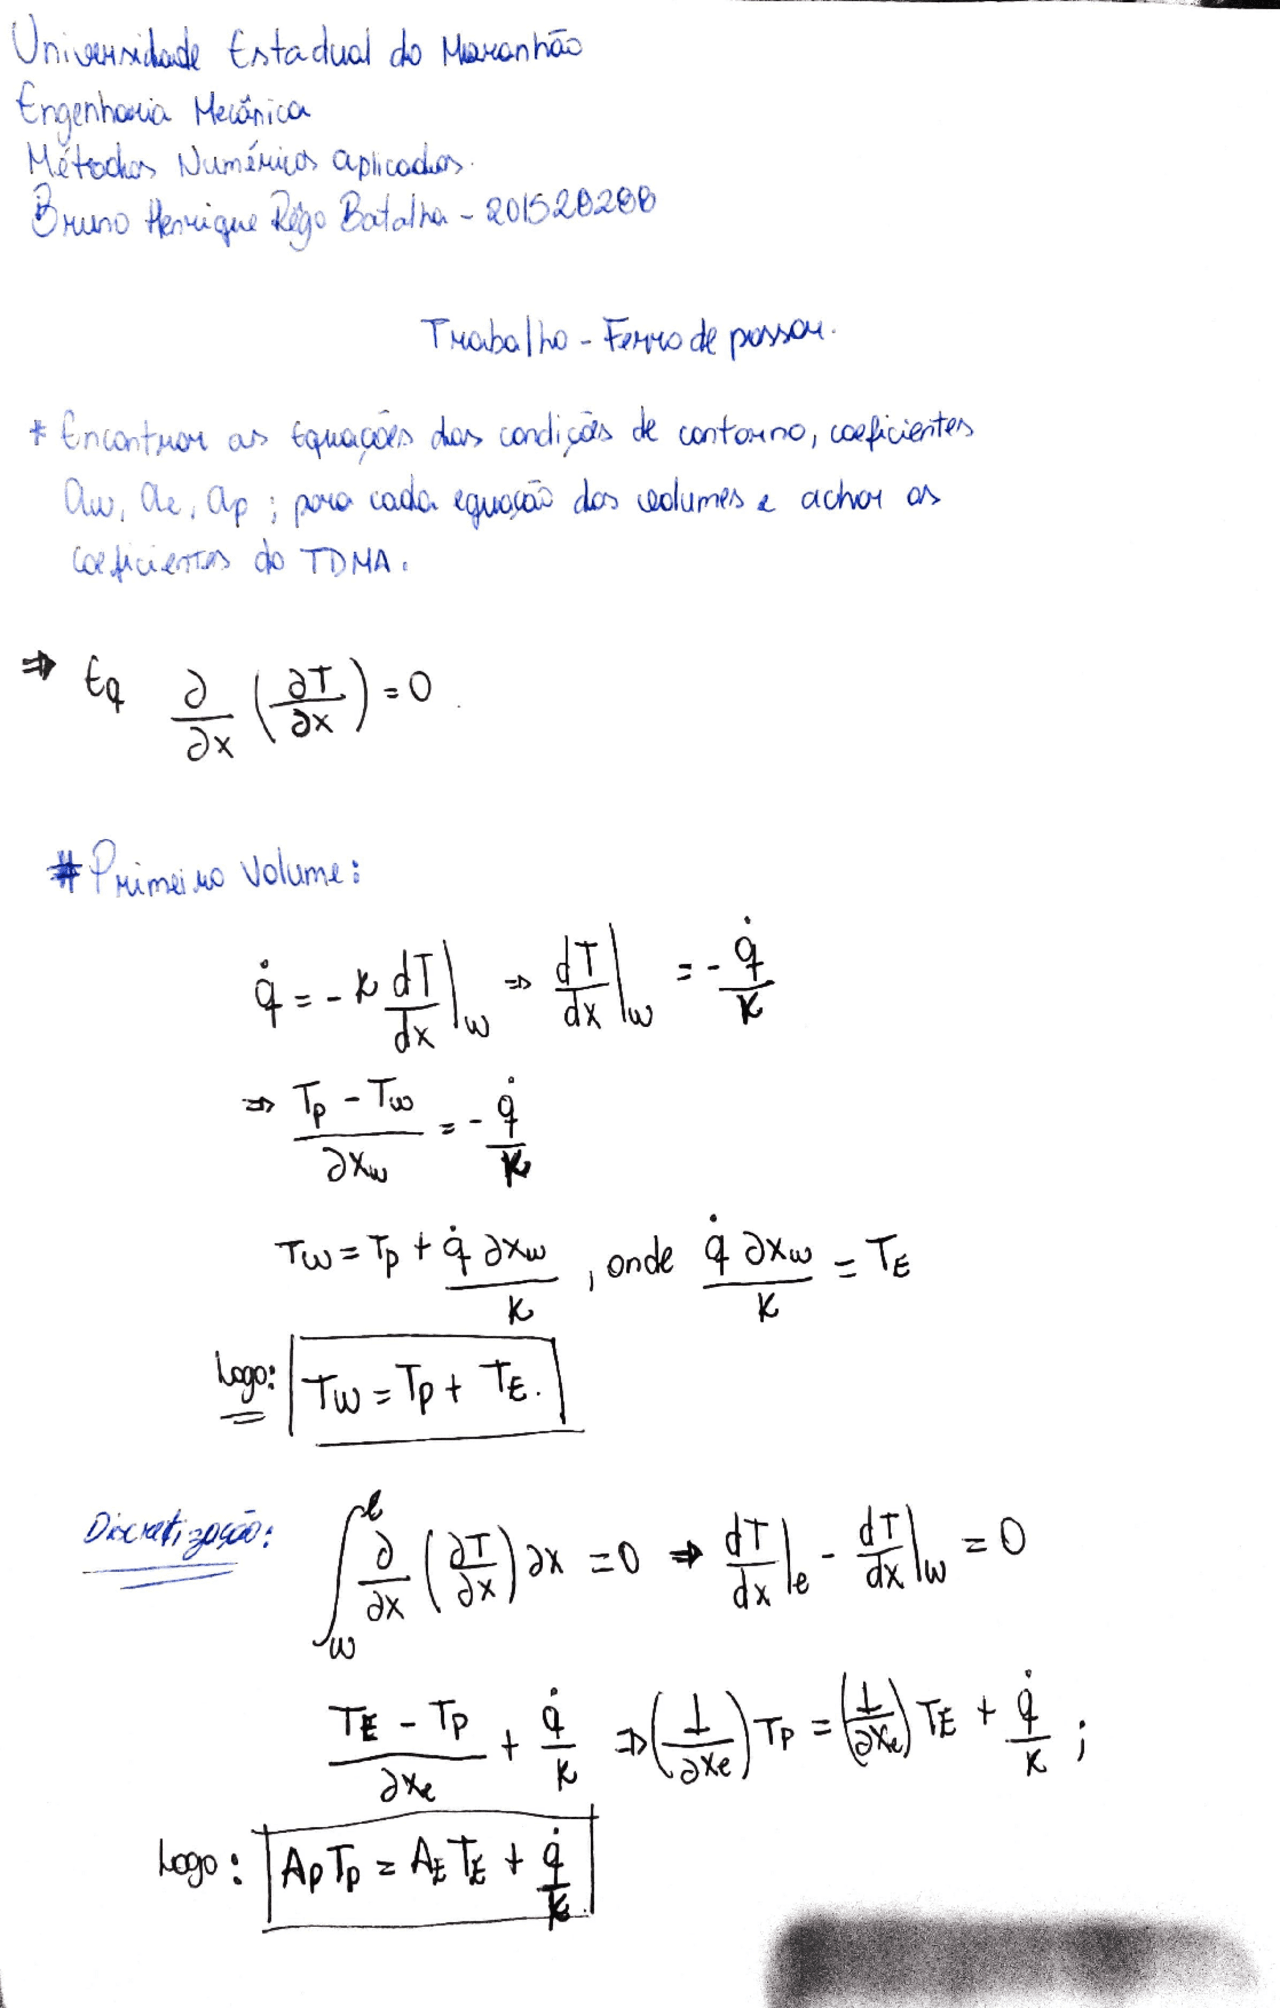 Universidade Estadual do Maranhão
Engenharia Mecânica
Métodos Numéricos aplicados.
Bruno Henrique Rêgo Batalha - 201520200
Trabalho - Ferro de passar.
* Encontrar as Equações das condições de contorno, coeficientes
aw, ae, ap ; para cada equação dos volumes e achar os
coeficientes do TDMA.
⇒ Eq ∂/∂x (∂T/∂x) = 0
# Primeiro Volume:
q̇ = - K dT/dx|w ⇒ dT/dx|w = - q̇/K
⇒ (Tp - Tw)/∂xw = - q̇/K
Tw = Tp + q̇ ∂xw/K , onde q̇ ∂xw/K = TE
Logo: Tw = Tp + TE.
Discretização: ∫_w^e ∂/∂x (∂T/∂x) ∂x = 0 ⇒ dT/dx|e - dT/dx|w = 0
(TE - TP)/∂xe + q̇/K ⇒ (1/∂xe) TP = (1/∂xe) TE + q̇/K ;
Logo: AP TP = AE TE + q̇/K